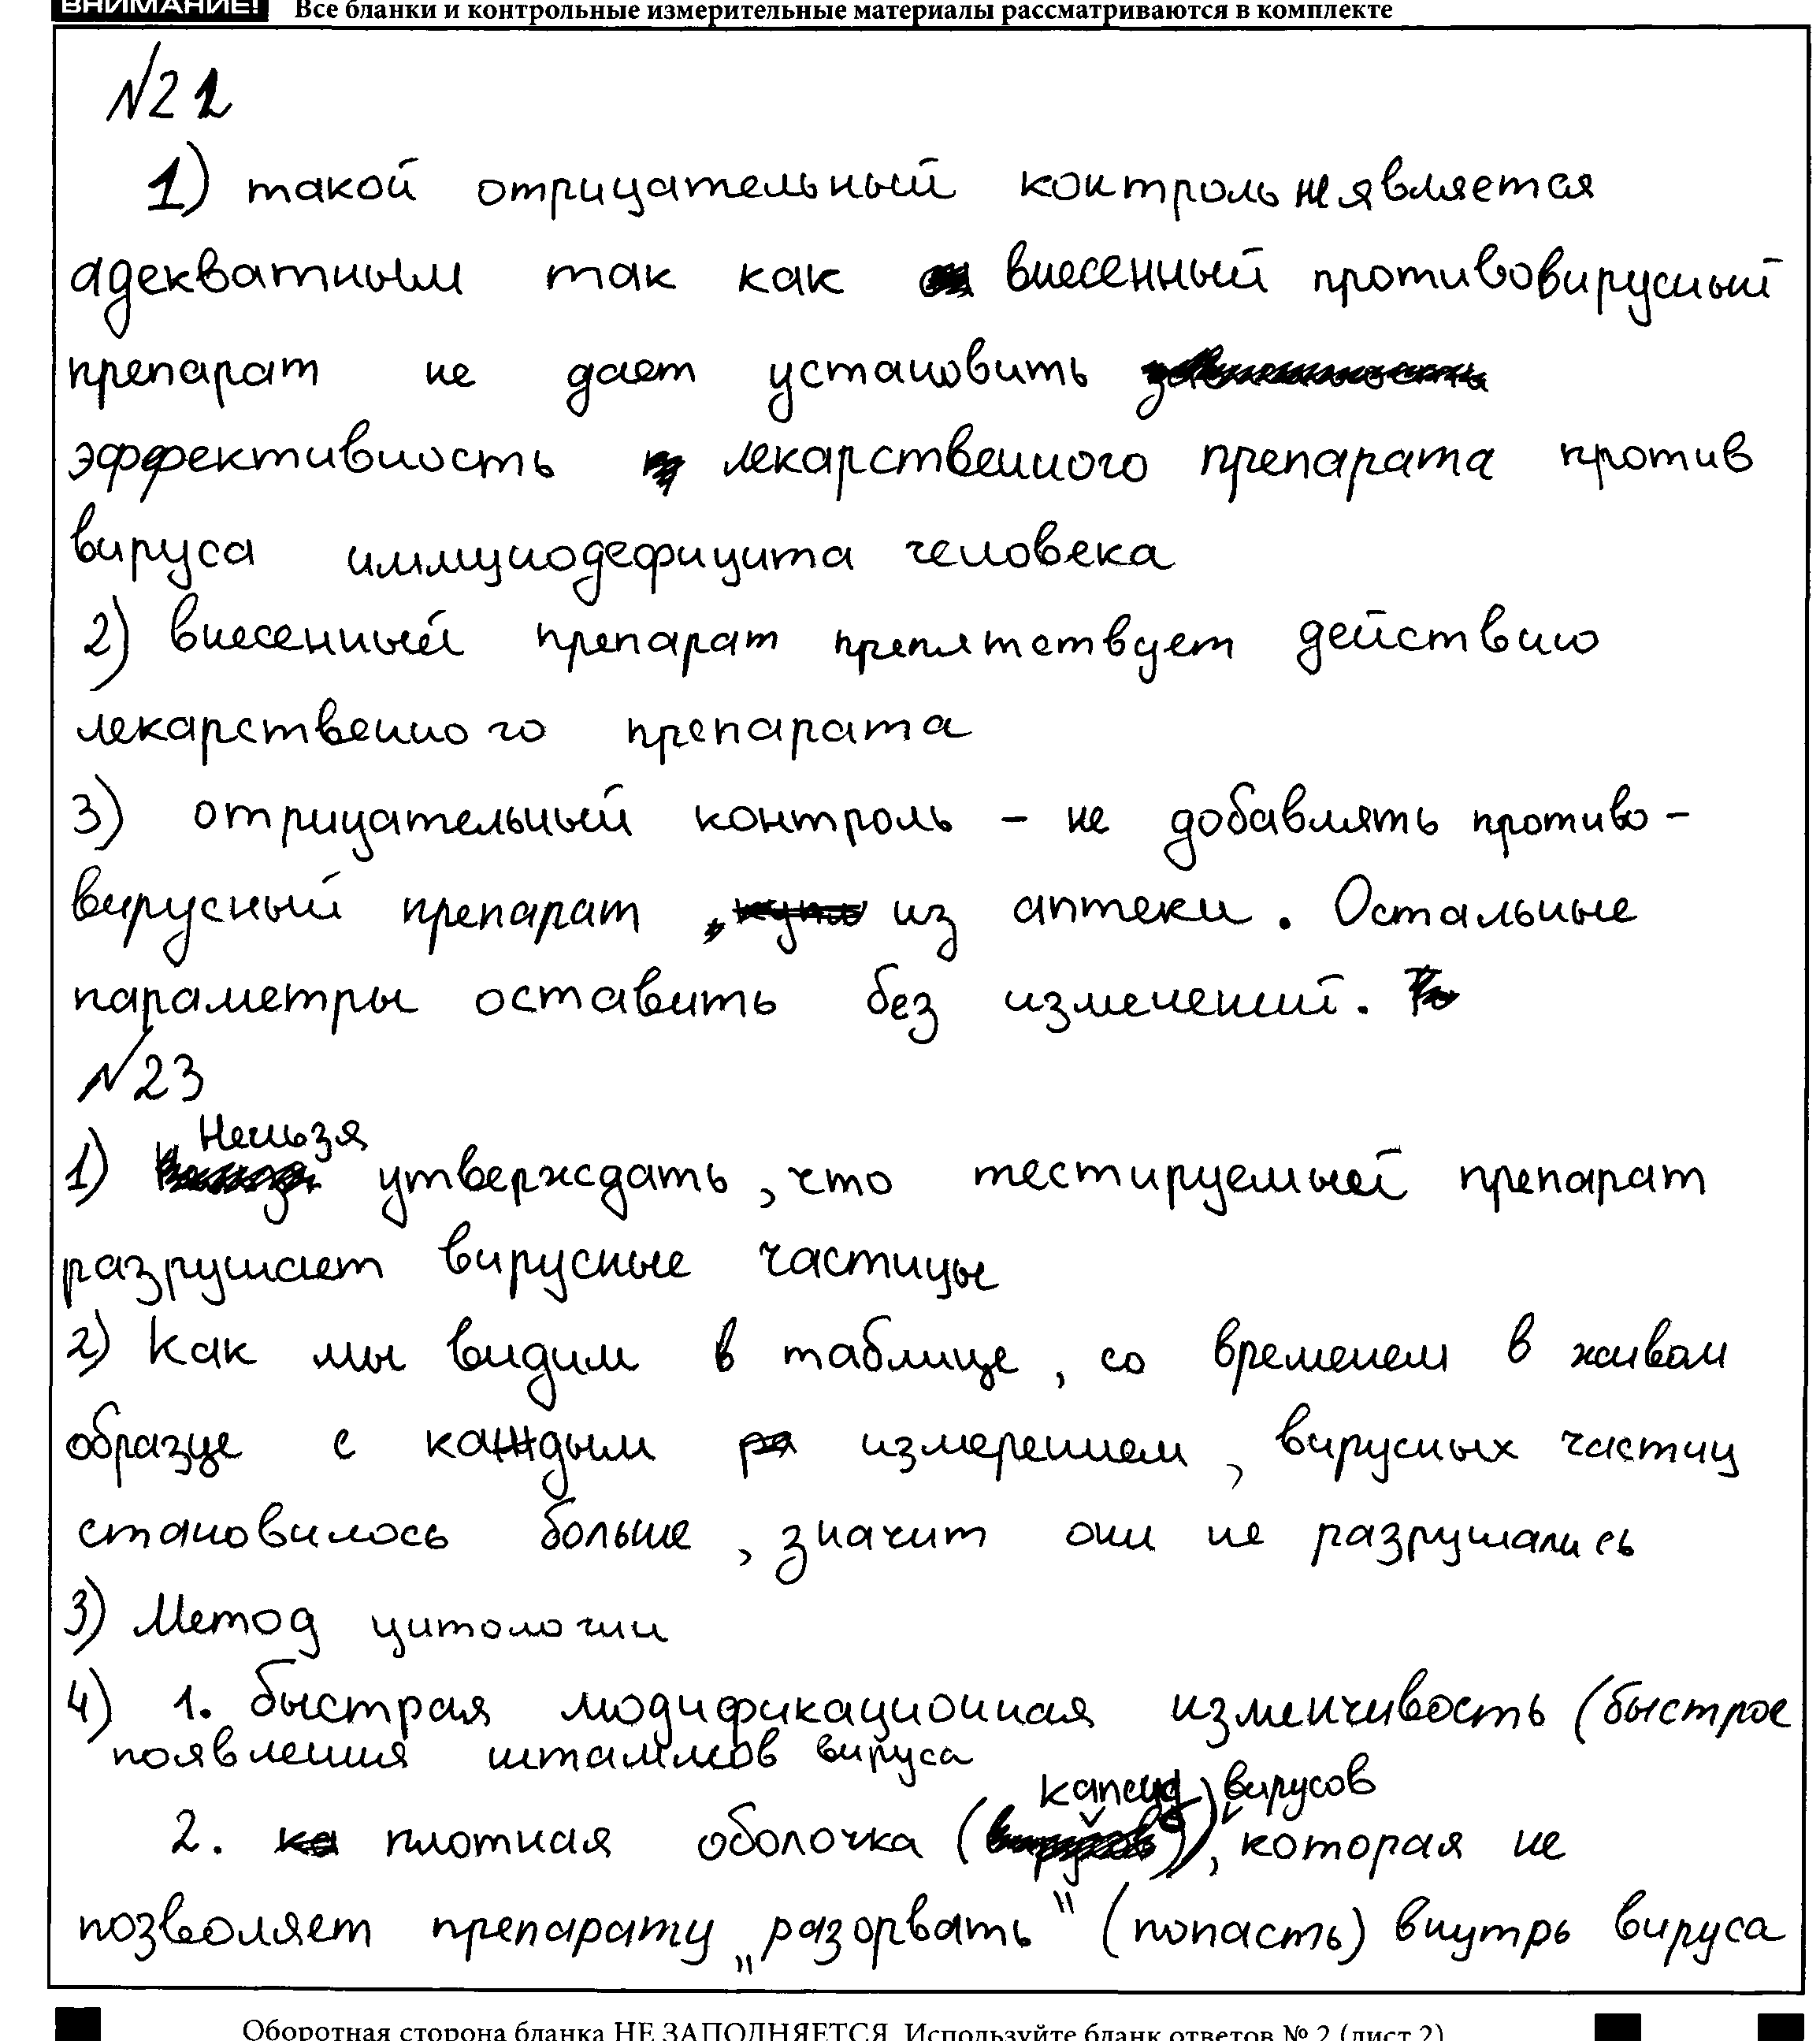 ВНИМАНИЕ! Все бланки и контрольные измерительные материалы рассматриваются в комплекте
№22
1) такой отрицательный контроль не является
адекватным так как внесенный противовирусный
препарат не дает установить
эффективность лекарственного препарата против
вируса иммунодефицита человека
2) внесенный препарат препятствует действию
лекарственного препарата
3) отрицательный контроль – не добавлять противо-
вирусный препарат из аптеки. Остальные
параметры оставить без изменений.
№23
1) Нельзя утверждать, что тестируемый препарат
разрушает вирусные частицы
2) Как мы видим в таблице, со временем в живом
образце с каждым измерением, вирусных частиц
становилось больше, значит они не разрушались
3) Метод цитологии
4) 1. быстрая модификационная изменчивость (быстрое
появления штаммов вируса
2. плотная оболочка (капсид) вирусов, которая не
позволяет препарату „разорвать" (попасть) внутрь вируса
Оборотная сторона бланка НЕ ЗАПОЛНЯЕТСЯ. Используйте бланк ответов № 2 (лист 2)